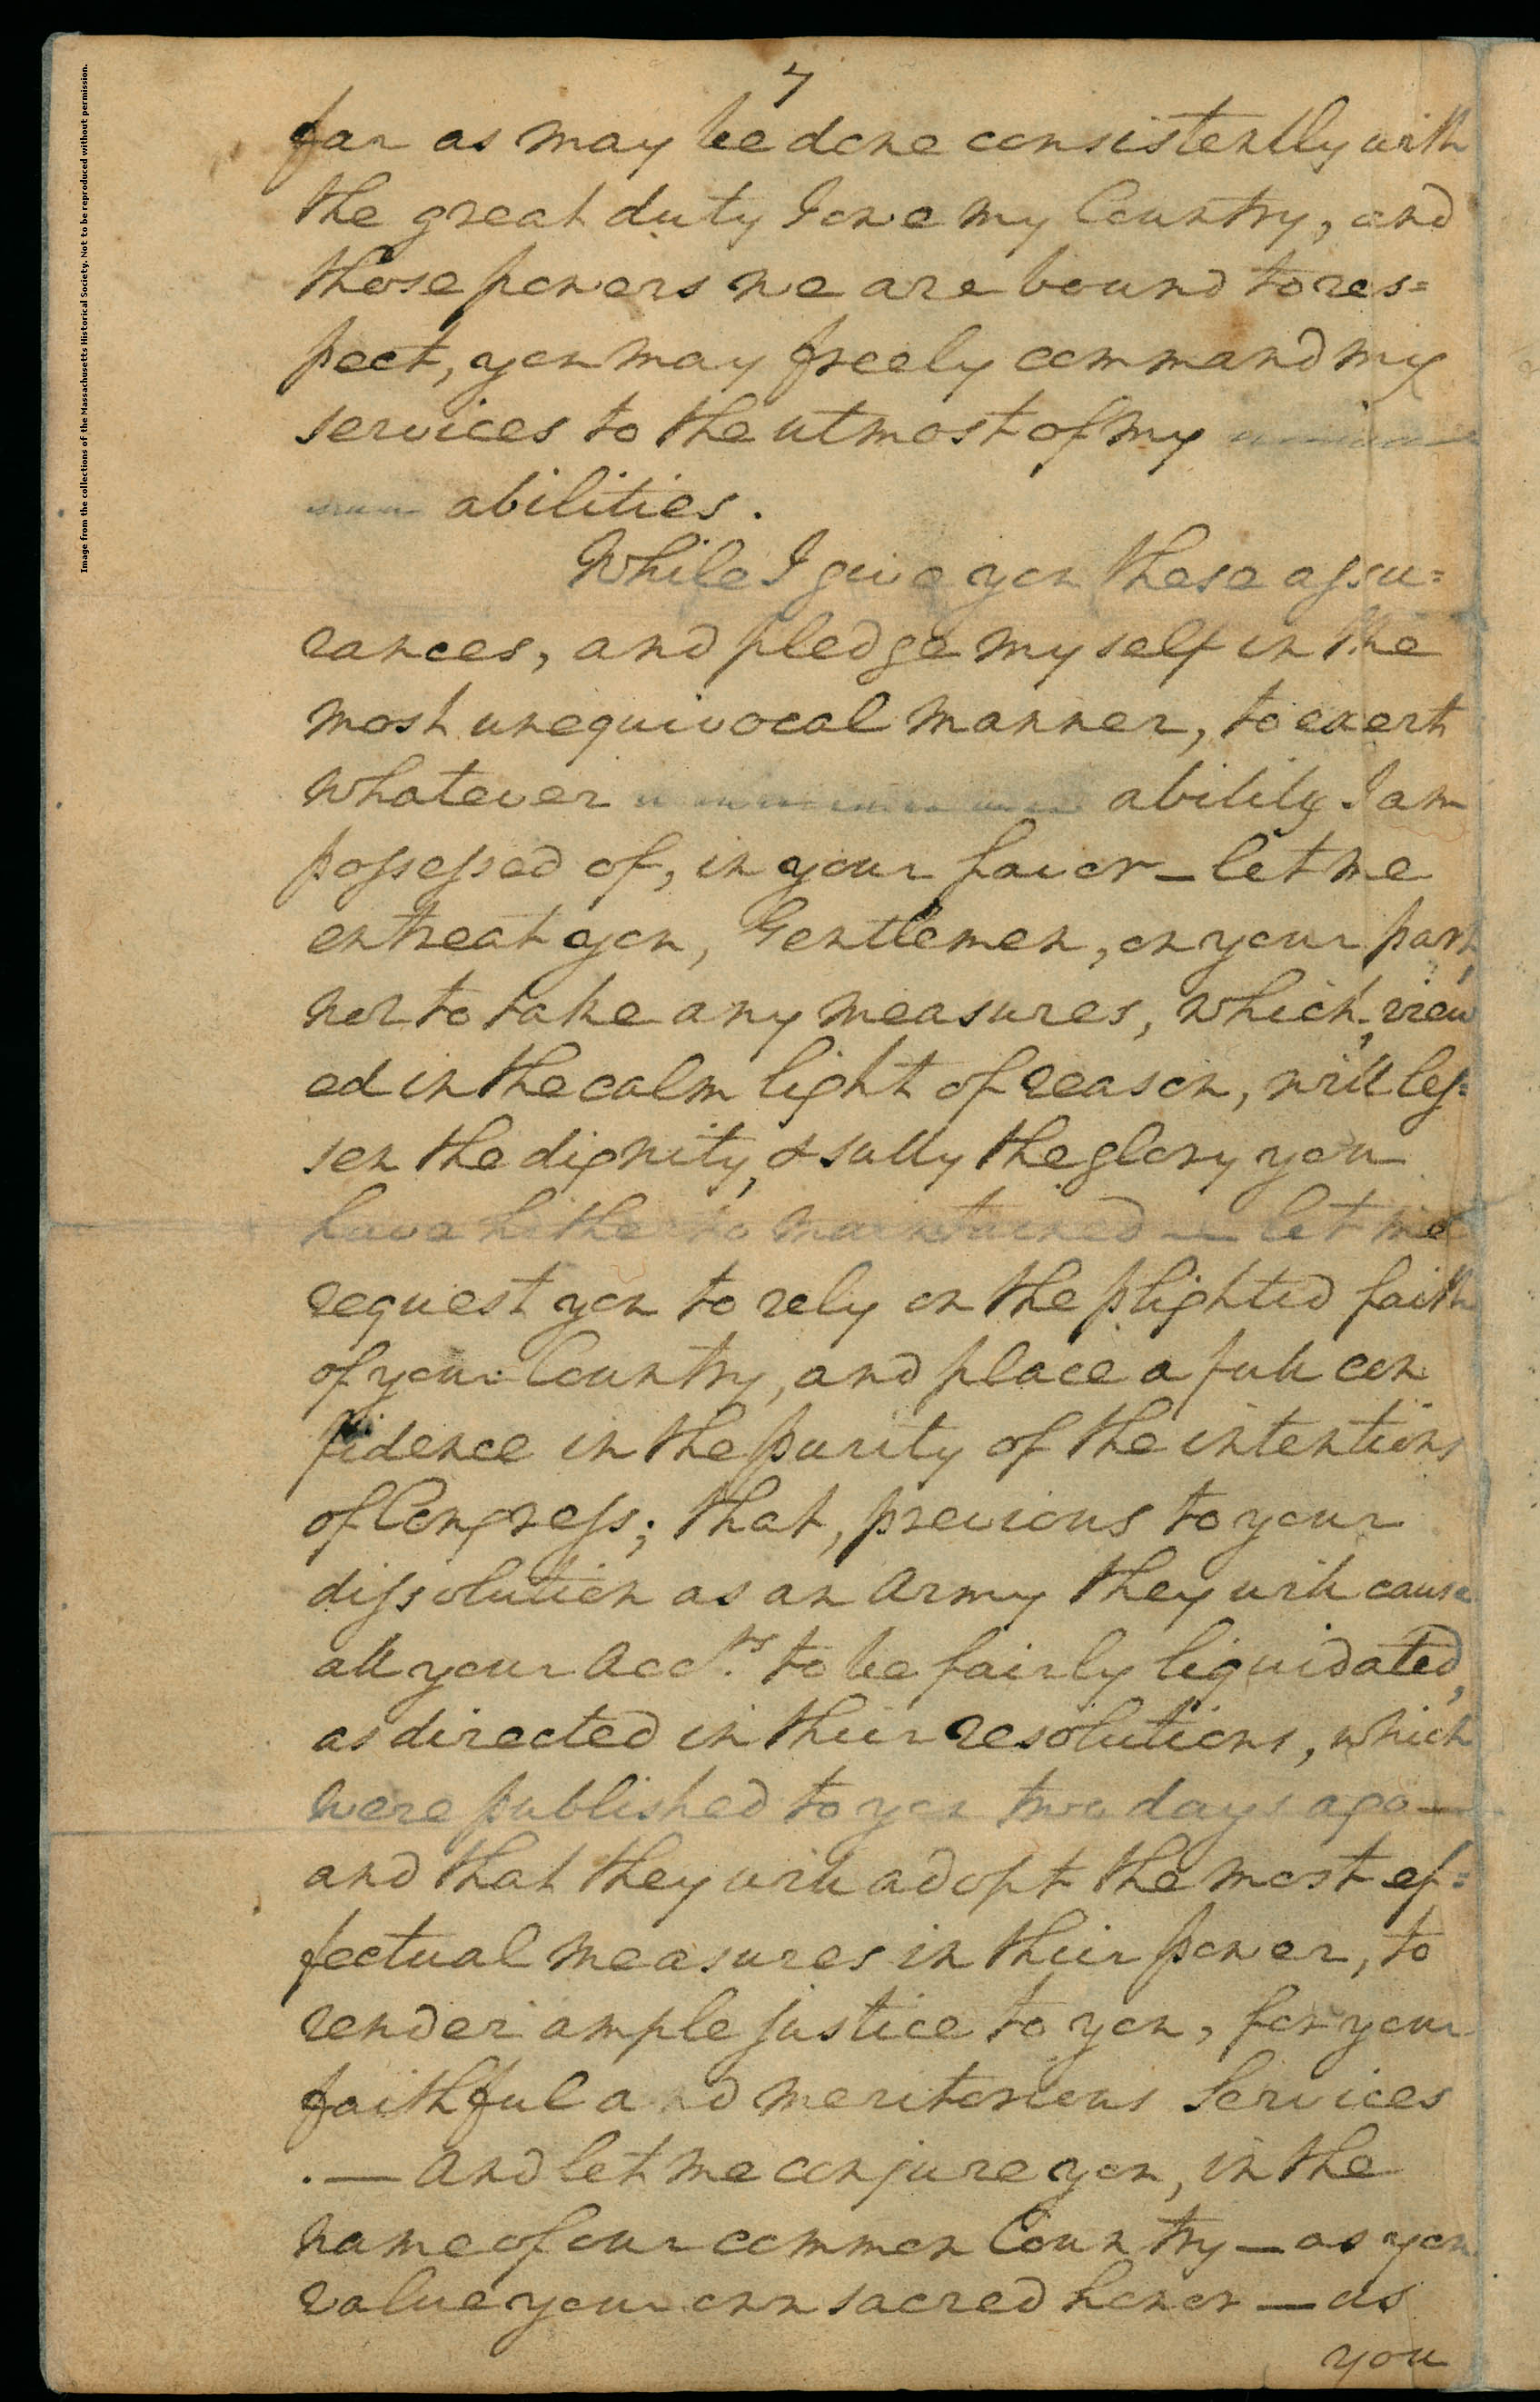 Image from the collections of the Massachusetts Historical Society. Not to be reproduced without permission.
7
far as may be done consistently with
the great duty I owe my Country, and
those powers we are bound to res=
pect, you may freely command my
services to the utmost of my
abilities.
While I give you these assu=
rances, and pledge myself in the
most unequivocal manner, to exert
whatever ability I am
possessed of, in your favor — let me
entreat you, Gentlemen, on your part,
not to take any measures, which, view
ed in the calm light of reason, will les=
sen the dignity, & sully the glory you
have hitherto maintained — let me
request you to rely on the plighted faith
of your Country, and place a full con
fidence in the purity of the intentions
of Congress; that, previous to your
dissolution as an Army they will cause
all your Accts. to be fairly liquidated,
as directed in their resolutions, which
were published to you two days ago —
and that they will adopt the most ef=
fectual measures in their power, to
render ample justice to you, for your
faithful and meritorious Services
. — And let me conjure you, in the
name of our common Country — as you
value your own sacred honor — as
you